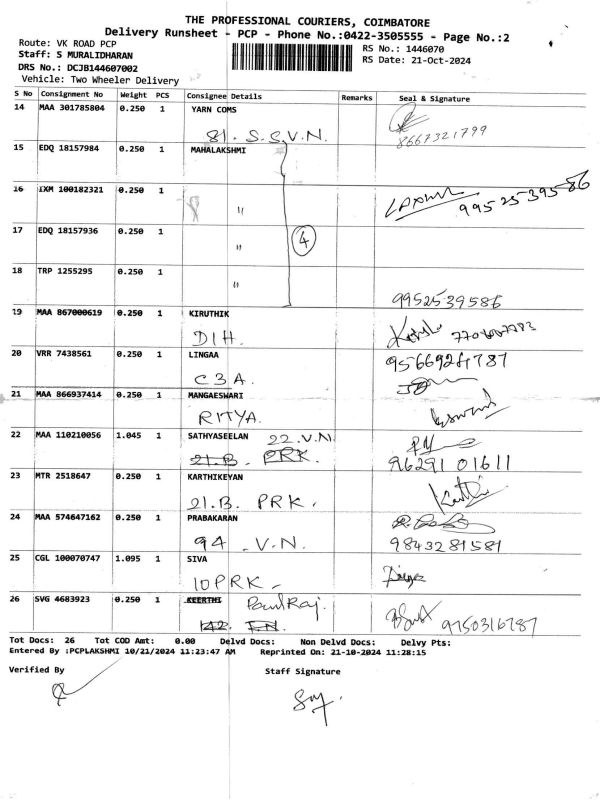 THE PROFESSIONAL COURIERS, COIMBATORE
Delivery Runsheet - PCP - Phone No.:0422-3505555 - Page No.:2
Route: VK ROAD PCP RS No.: 1446070
Staff: S MURALIDHARAN RS Date: 21-Oct-2024
DRS No.: DCJB144607002
Vehicle: Two Wheeler Delivery
S No Consignment No Weight PCS Consignee Details Remarks Seal & Signature
14 MAA 301785804 0.250 1 YARN COMS
81. S.S.V.N. 8667321799
15 EDQ 18157984 0.250 1 MAHALAKSHMI
16 IXM 100182321 0.250 1
" 9952539586
17 EDQ 18157936 0.250 1
" 4
18 TRP 1255295 0.250 1
" 9952539586
19 MAA 867000619 0.250 1 KIRUTHIK
DIH.
20 VRR 7438561 0.250 1 LINGAA
C3A.
21 MAA 866937414 0.250 1 MANGAESWARI
RITYA. Eswari
22 MAA 110210056 1.045 1 SATHYASEELAN 22.V.N.
21.B. PRK. 96291 01611
23 MTR 2518647 0.250 1 KARTHIKEYAN
21.B. PRK.
24 MAA 574647162 0.250 1 PRABAKARAN
94 .V.N. 9843281581
25 CGL 100070747 1.095 1 SIVA
10PRK.
26 SVG 4683923 0.250 1 KEERTHI PaulRaj.
142. 9750316787
Tot Docs: 26 Tot COD Amt: 0.00 Delvd Docs: Non Delvd Docs: Delvy Pts:
Entered By :PCPLAKSHMI 10/21/2024 11:23:47 AM Reprinted On: 21-10-2024 11:28:15
Verified By Staff Signature